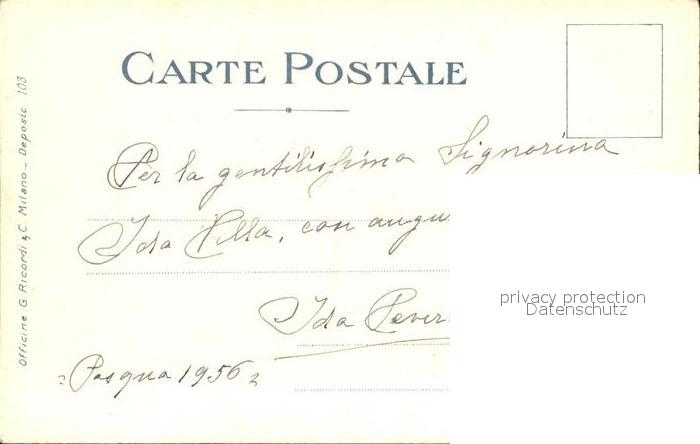 CARTE POSTALE
Per la gentilissima Signorina
Ida Villa, con augu
Ida Pever
Pasqua 1956
Officine G. Ricordi & C. Milano - Deposic 103
privacy protection
Datenschutz